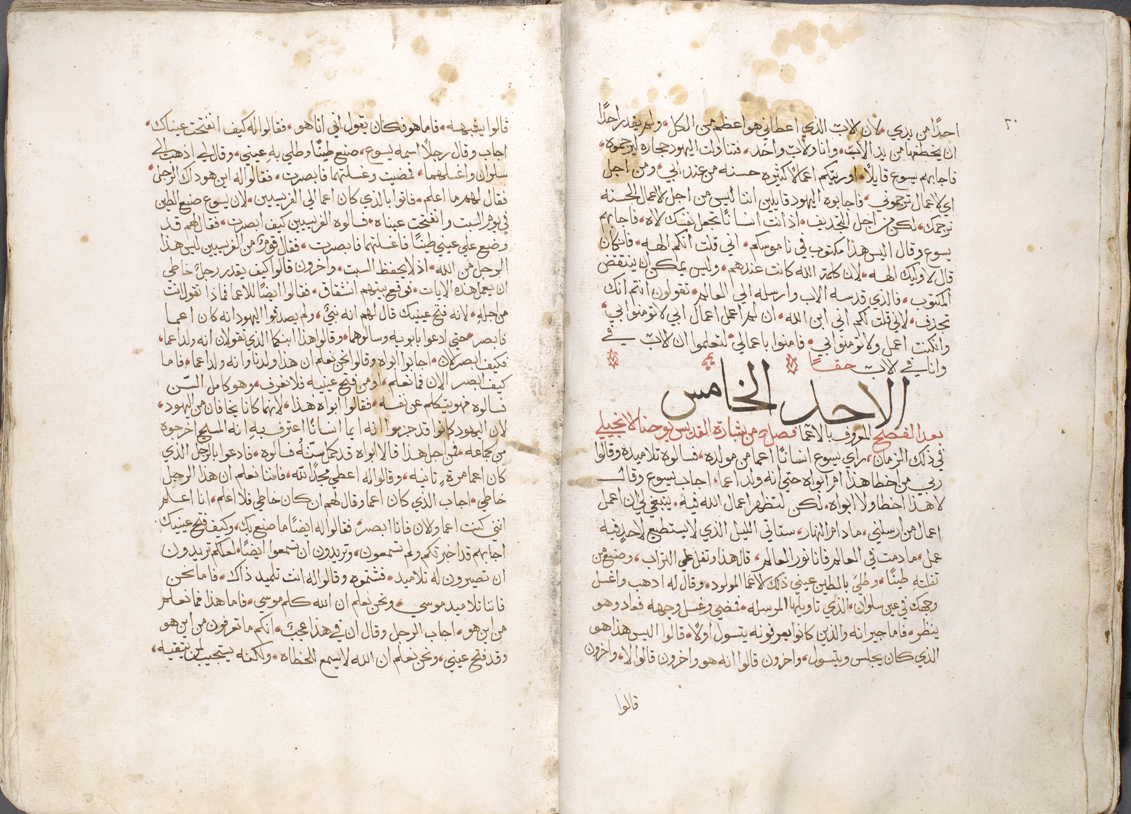 ٢٠
احدًا من يدي، لان الاب الذي اعطاني هو اعظم من الكل، ولم يقدر احدًا
ان يخطفها من يد الاب، وانا والاب واحد، فتناولت اليهود حجاره ليرجموه،
فاجابهم يسوع قايلاً، اوريتكم اعمالا كثيره حسنه من عند ابي، ومن اجل
اي الاعمال ترجموني، فاجابوه اليهود قايلين اننا ليس من اجل الاعمال الحسنه
نرجمك، لكن من اجل التجديف، اذ انت انسانًا تجعل نفسك الاه، فاجابهم
يسوع وقال اليس هذا مكتوب في ناموسكم، اني قلت انكم الهه، فان كان
قال لاوليك الهه، لان كلمة الله كانت عندهم، وليس يمكن ان ينتقض
المكتوب، فالذي قدسه الاب وارسله الي العالم، تقولون انتم انك
تجدف، لاني قلت لكم اني ابن الله، ان لم اعمل اعمال ابي لا تومنوا بي،
وان كنت اعمل ولا تومنوا بي، فامنوا باعمالي، لتعلموا ان الاب في
وانا في الاب حقًا
الاحد الخامس
بعد الفصح المعروف بالاعما فصل من بشارة القديس يوحنا الانجيلي
في ذلك الزمان، راي يسوع انسانًا اعما من مولده، فسالوه تلاميذه وقالوا
ربي من اخطا هذا ام ابواه حتي انه ولد اعما، اجاب يسوع وقال
لا هذا اخطا ولا ابواه، لكن لتظهر اعمال الله فيه، ينبغي لي ان اعمل
اعمال من ارسلني، ما دام النهار، ستاتي الليل الذي لا يستطيع لاحد فيه
عمل، ما دمت في العالم فانا نور العالم، قال هذا وتفل علي التراب، وصنع من
تفلته طينًا، وطلي بالطين عيني ذلك الاعما المولود، وقال له اذهب واغسل
وجهك في عين سلوان، الذي تاويلها المرسله، فمضي وغسل وجهه فعاد وهو
ينظر، فاما جيرانه والذين كانوا يعرفونه يتسول اولاً، قالوا اليس هذا هو
الذي كان يجلس ويتسول، واخرون قالوا انه هو واخرون قالوا لا، واخرون
قالوا
قالوا يشبهه، فاما هو فكان يقول اني انا هو، فقالوا له كيف انفتحت عيناك
اجاب وقال رجلا اسمه يسوع، صنع طينًا وطلي به عيني، وقال لي اذهب الي
سلوان واغسلهما، فمضيت وغسلتهما فابصرت، فقالوا له اين هو ذاك الرجل
فقال لهم ما اعلم، فاتوا بالذي كان اعما الي الفريسيين، لان يسوع صنع الطين
في يوم السبت وانفتحت عيناه، فسالوه الفريسيين كيف ابصرت، فقال لهم قد
وضع علي عيني طينًا فاغسلتهما فابصرت، فقال قوم من الفريسيين ليس هذا
الرجل من الله، اذ لا يحفظ السبت، واخرون قالوا كيف يقدر رجل خاطي
ان يعمل هذه الايات، فوقع بينهم انشقاق، فقالوا ايضًا للاعما فاذا تقول انت
من اجله، لانه فتح عينيك قال لهم انه نبي، ولم يصدقوا اليهود انه كان اعما
فابصر، حتي ادعوا بابويه وسالوهما، وقالوا هذا ابنكما الذي تقولان انه ولد اعما،
فكيف ابصر الان، اجابوا ابواه وقالوا نحن نعلم ان هذا ولدنا وانه ولد اعما، فاما
كيف ابصر الان فانعلم، او من فتح عينيه فلا نعرف، وهو كامل السن
فسالوه فهو يتكلم عن نفسه، فقالوا ابواه هذا، لانهما كانا يخافان من اليهود،
لان اليهود كانوا قد جزموا انه ايا انسانًا اعترف به انه المسيح اخرجوه
من المجاعه، من اجل هذا قالا ابواه قد كمل سنّه فسالوه، فادعوا بالرجل الذي
كان اعما مرة ثانيه، وقالوا له اعطي مجدًا لله، فاننا نعلم ان هذا الرجل
خاطي، اجاب الذي كان اعما وقال لهم ان كان خاطي فلا اعلم، انا اعلم
انني كنت اعما والان فانا ابصر، فقالوا له ايضًا ما صنع بك، وكيف فتح عينيك
اجابهم قد اخبرتكم ولم تسمعون، وتريدون ان تسمعوا ايضًا، لعلكم تريدون
ان تصيرون له تلاميذ، فشتموه وقالوا له انت تلميذ ذاك، فاما نحن
فاننا تلاميذ موسي، ونحن نعلم ان الله كلم موسي، فاما هذا فما نعلم
من اين هو، اجاب الرجل وقال ان في هذا عجبًا، انكم ما تعرفون من اين هو
وقد فتح عيني، ونحن نعلم ان الله لا يسمع الخطاه، ولكنه يستجيب لمن يتقيه،